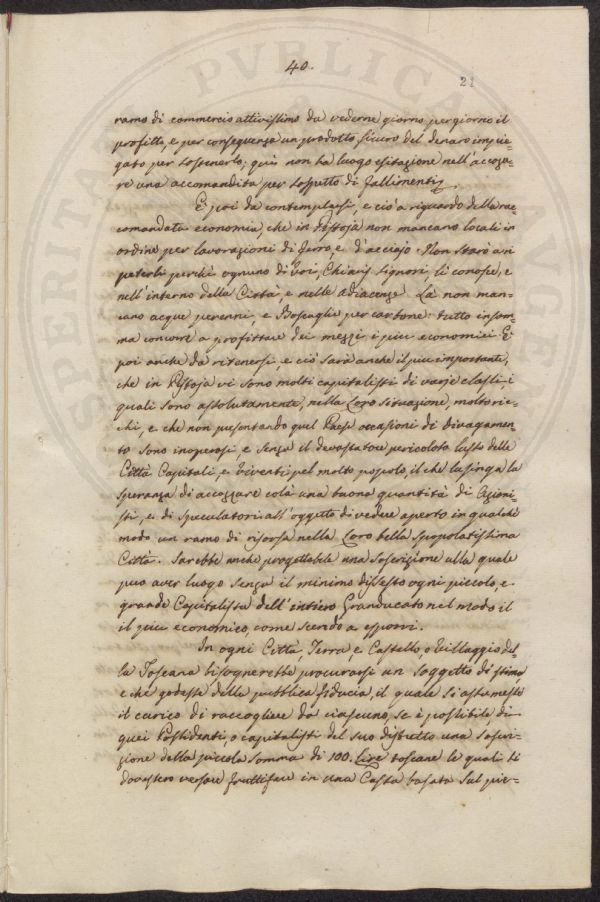 40.
21
ramo di commercio attivissimo da vederne giorno, per giorno il
profitto, e per conseguenza un prodotto sicuro del denaro impie=
gato per sostenerlo; quì non ha luogo esitazione nell'accoza=
re una accomandita per sospetto di fallimenti.
E poi da contemplarsi, e ciò a riguardo della rac=
comandata economia, che in Pistoja non mancano locali in
ordine per lavorazioni di ferro, e d'acciajo. Non starò a ri
peterli perchè ognuno di Voi, Chiaris. Signori, li conosce, e
nell'interno della Città, e nelle adiacenze. Là non man=
cano acque perenni, e Boscaglie per carbone: tutto insom=
ma concorre a profittare dei mezzi i più economici. E
poi anche da ritenersi, e ciò sarà anche il più importante,
che in Pistoja vi sono molti capitalisti di varie classi, i
quali sono assolutamente, nella loro situazione, molto ric=
chi, e che non presentando quel Paese occasioni di divagamen=
to sono inoperosi, e senza il devastatore pericoloso lusso delle
Città Capitali, e viventi pel molto popolo, il che lusinga la
speranza di accozzare colà una buona quantità di Azioni=
sti, e di speculatori all'oggetto di vedere aperto in qualche
modo un ramo di risorsa nella loro bella spopolatissima
Città. Sarebbe anche progettabile una soscrizione alla quale
può aver luogo senza il minimo dissesto ogni piccolo, e
grande Capitalista dell'intiero Granducato nel modo il
il più economico, come scendo a esporvi.
In ogni Città, Terra, e Castello, o Villaggio del=
la Toscana bisognerebbe procurarsi un soggetto di stima
e che godesse della pubblica fiducia, il quale si assumesse
il carico di raccogliere da ciascuno, se è possibile di
quei Possidenti, o capitalisti del suo distretto una soscri=
zione della piccola somma di 100. Lire toscane le quali si
dovessero versare fruttifere in una Cassa basata sul pie=
SPERAT PVBLICA AVGE